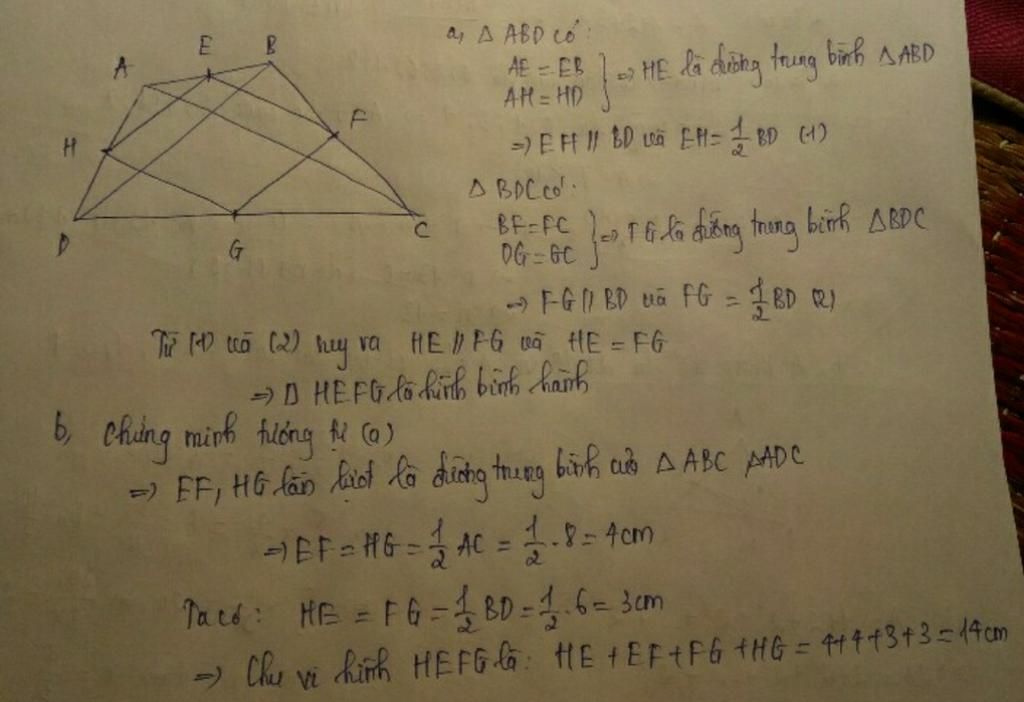 E B
A
F
H
D G C
a, Δ ABD có:
AE = EB
AH = HD } => HE là đường trung bình Δ ABD
=> EH // BD và EH = 1/2 BD (1)
Δ BDC có:
BF = FC
DG = GC } => FG là đường trung bình Δ BDC
=> FG // BD và FG = 1/2 BD (2)
Từ (1) và (2) suy ra HE // FG và HE = FG
=> □ HEFG là hình bình hành
b, Chứng minh tương tự (a)
=> EF, HG lần lượt là đường trung bình của Δ ABC, Δ ADC
=> EF = HG = 1/2 AC = 1/2 . 8 = 4cm
Ta có: HE = FG = 1/2 BD = 1/2 . 6 = 3cm
=> Chu vi hình HEFG là: HE + EF + FG + HG = 4+4+3+3 = 14cm